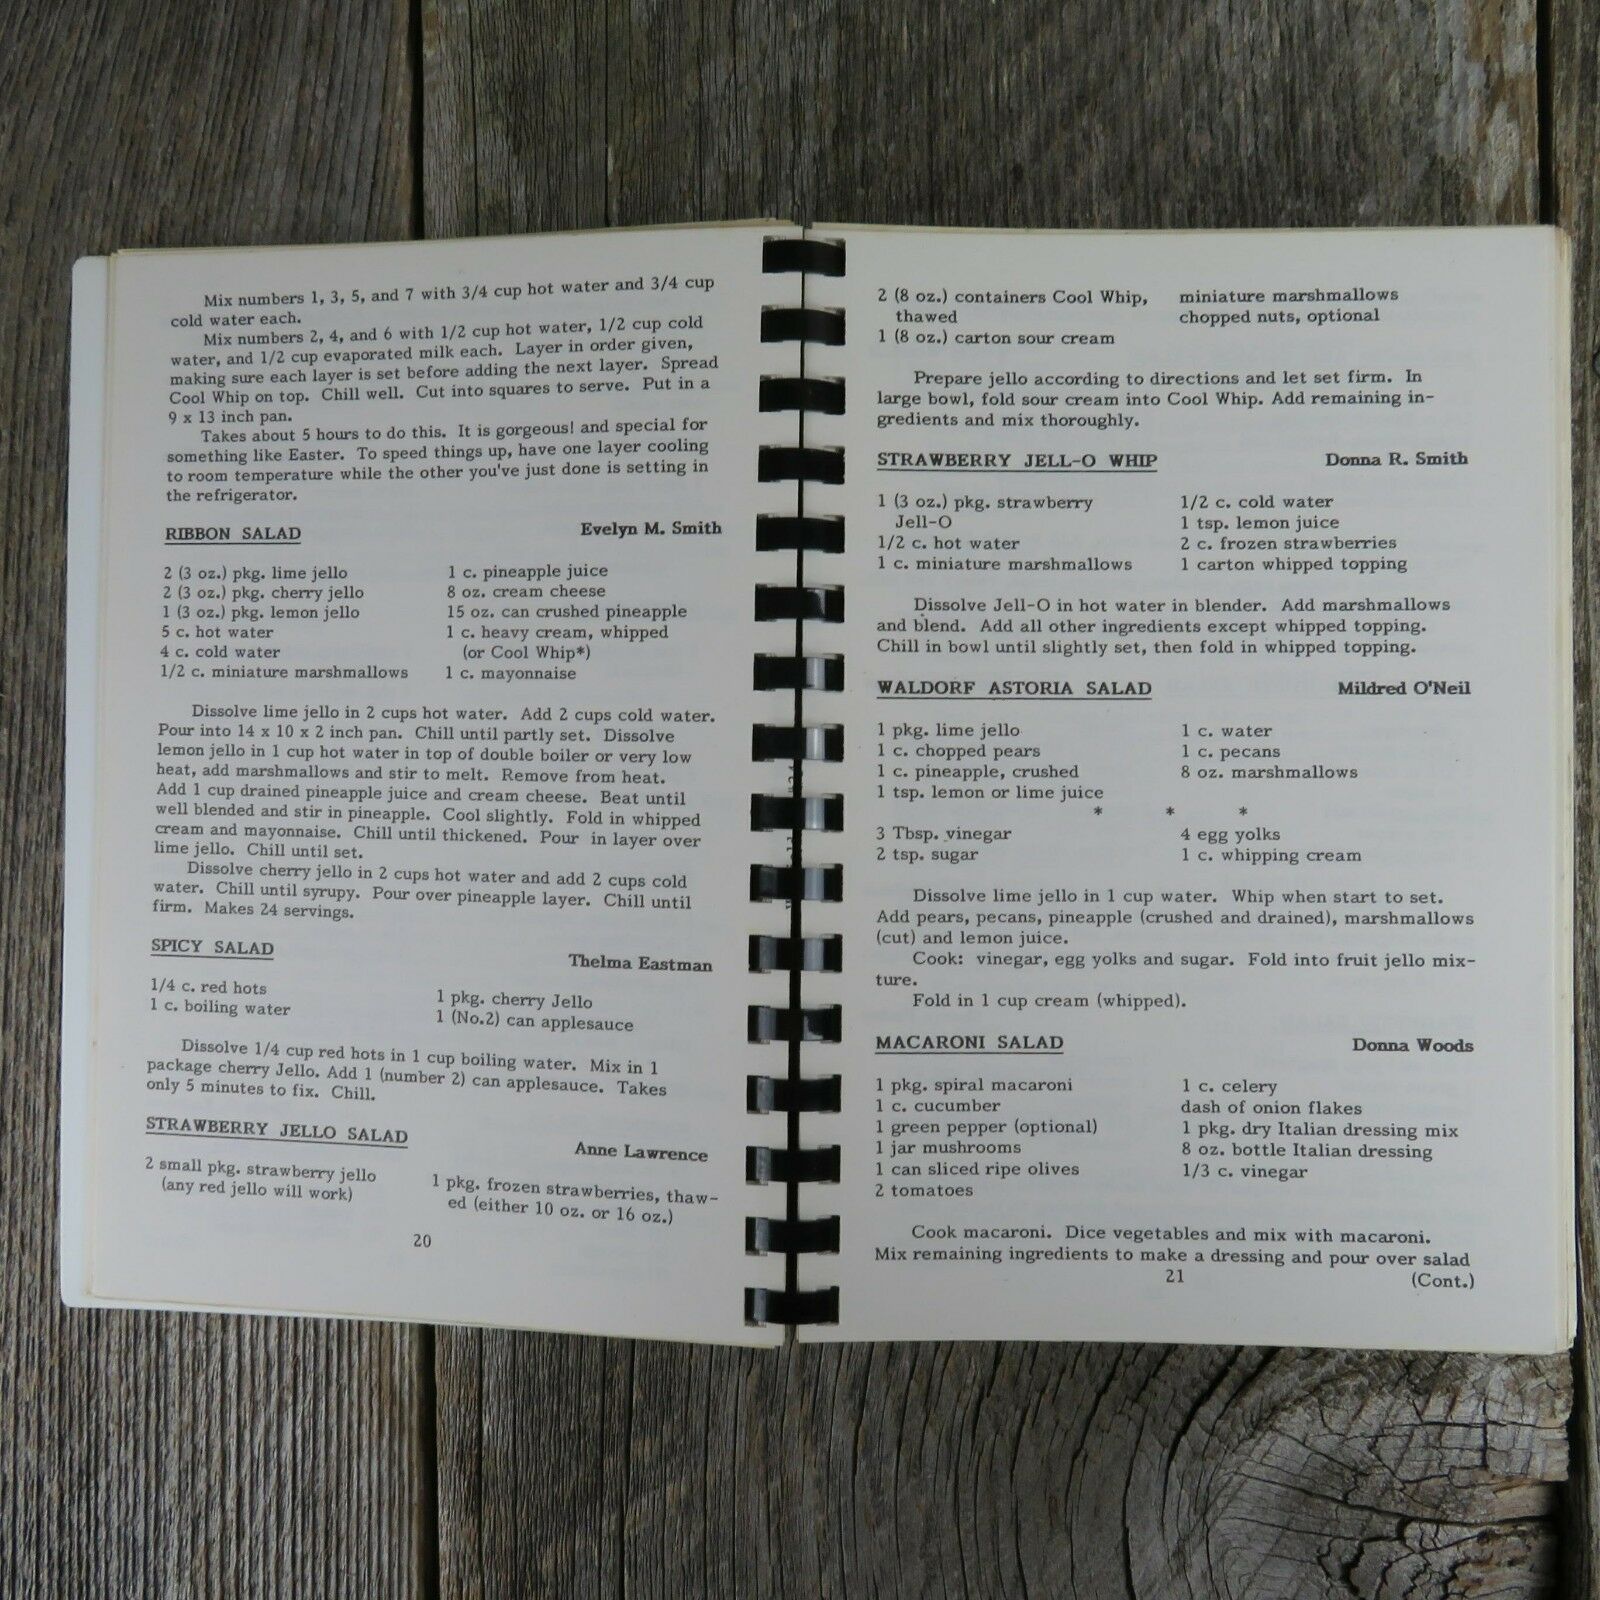 Mix numbers 1, 3, 5, and 7 with 3/4 cup hot water and 3/4 cup
cold water each.
Mix numbers 2, 4, and 6 with 1/2 cup hot water, 1/2 cup cold
water, and 1/2 cup evaporated milk each. Layer in order given,
making sure each layer is set before adding the next layer. Spread
Cool Whip on top. Chill well. Cut into squares to serve. Put in a
9 x 13 inch pan.
Takes about 5 hours to do this. It is gorgeous! and special for
something like Easter. To speed things up, have one layer cooling
to room temperature while the other you've just done is setting in
the refrigerator.
RIBBON SALAD Evelyn M. Smith
2 (3 oz.) pkg. lime jello 1 c. pineapple juice
2 (3 oz.) pkg. cherry jello 8 oz. cream cheese
1 (3 oz.) pkg. lemon jello 15 oz. can crushed pineapple
5 c. hot water 1 c. heavy cream, whipped
4 c. cold water (or Cool Whip*)
1/2 c. miniature marshmallows 1 c. mayonnaise
Dissolve lime jello in 2 cups hot water. Add 2 cups cold water.
Pour into 14 x 10 x 2 inch pan. Chill until partly set. Dissolve
lemon jello in 1 cup hot water in top of double boiler or very low
heat, add marshmallows and stir to melt. Remove from heat.
Add 1 cup drained pineapple juice and cream cheese. Beat until
well blended and stir in pineapple. Cool slightly. Fold in whipped
cream and mayonnaise. Chill until thickened. Pour in layer over
lime jello. Chill until set.
Dissolve cherry jello in 2 cups hot water and add 2 cups cold
water. Chill until syrupy. Pour over pineapple layer. Chill until
firm. Makes 24 servings.
SPICY SALAD Thelma Eastman
1/4 c. red hots 1 pkg. cherry Jello
1 c. boiling water 1 (No.2) can applesauce
Dissolve 1/4 cup red hots in 1 cup boiling water. Mix in 1
package cherry Jello. Add 1 (number 2) can applesauce. Takes
only 5 minutes to fix. Chill.
STRAWBERRY JELLO SALAD Anne Lawrence
2 small pkg. strawberry jello 1 pkg. frozen strawberries, thaw-
(any red jello will work) ed (either 10 oz. or 16 oz.)
20
2 (8 oz.) containers Cool Whip, miniature marshmallows
thawed chopped nuts, optional
1 (8 oz.) carton sour cream
Prepare jello according to directions and let set firm. In
large bowl, fold sour cream into Cool Whip. Add remaining in-
gredients and mix thoroughly.
STRAWBERRY JELL-O WHIP Donna R. Smith
1 (3 oz.) pkg. strawberry 1/2 c. cold water
Jell-O 1 tsp. lemon juice
1/2 c. hot water 2 c. frozen strawberries
1 c. miniature marshmallows 1 carton whipped topping
Dissolve Jell-O in hot water in blender. Add marshmallows
and blend. Add all other ingredients except whipped topping.
Chill in bowl until slightly set, then fold in whipped topping.
WALDORF ASTORIA SALAD Mildred O'Neil
1 pkg. lime jello 1 c. water
1 c. chopped pears 1 c. pecans
1 c. pineapple, crushed 8 oz. marshmallows
1 tsp. lemon or lime juice
* * *
3 Tbsp. vinegar 4 egg yolks
2 tsp. sugar 1 c. whipping cream
Dissolve lime jello in 1 cup water. Whip when start to set.
Add pears, pecans, pineapple (crushed and drained), marshmallows
(cut) and lemon juice.
Cook: vinegar, egg yolks and sugar. Fold into fruit jello mix-
ture.
Fold in 1 cup cream (whipped).
MACARONI SALAD Donna Woods
1 pkg. spiral macaroni 1 c. celery
1 c. cucumber dash of onion flakes
1 green pepper (optional) 1 pkg. dry Italian dressing mix
1 jar mushrooms 8 oz. bottle Italian dressing
1 can sliced ripe olives 1/3 c. vinegar
2 tomatoes
Cook macaroni. Dice vegetables and mix with macaroni.
Mix remaining ingredients to make a dressing and pour over salad
21 (Cont.)